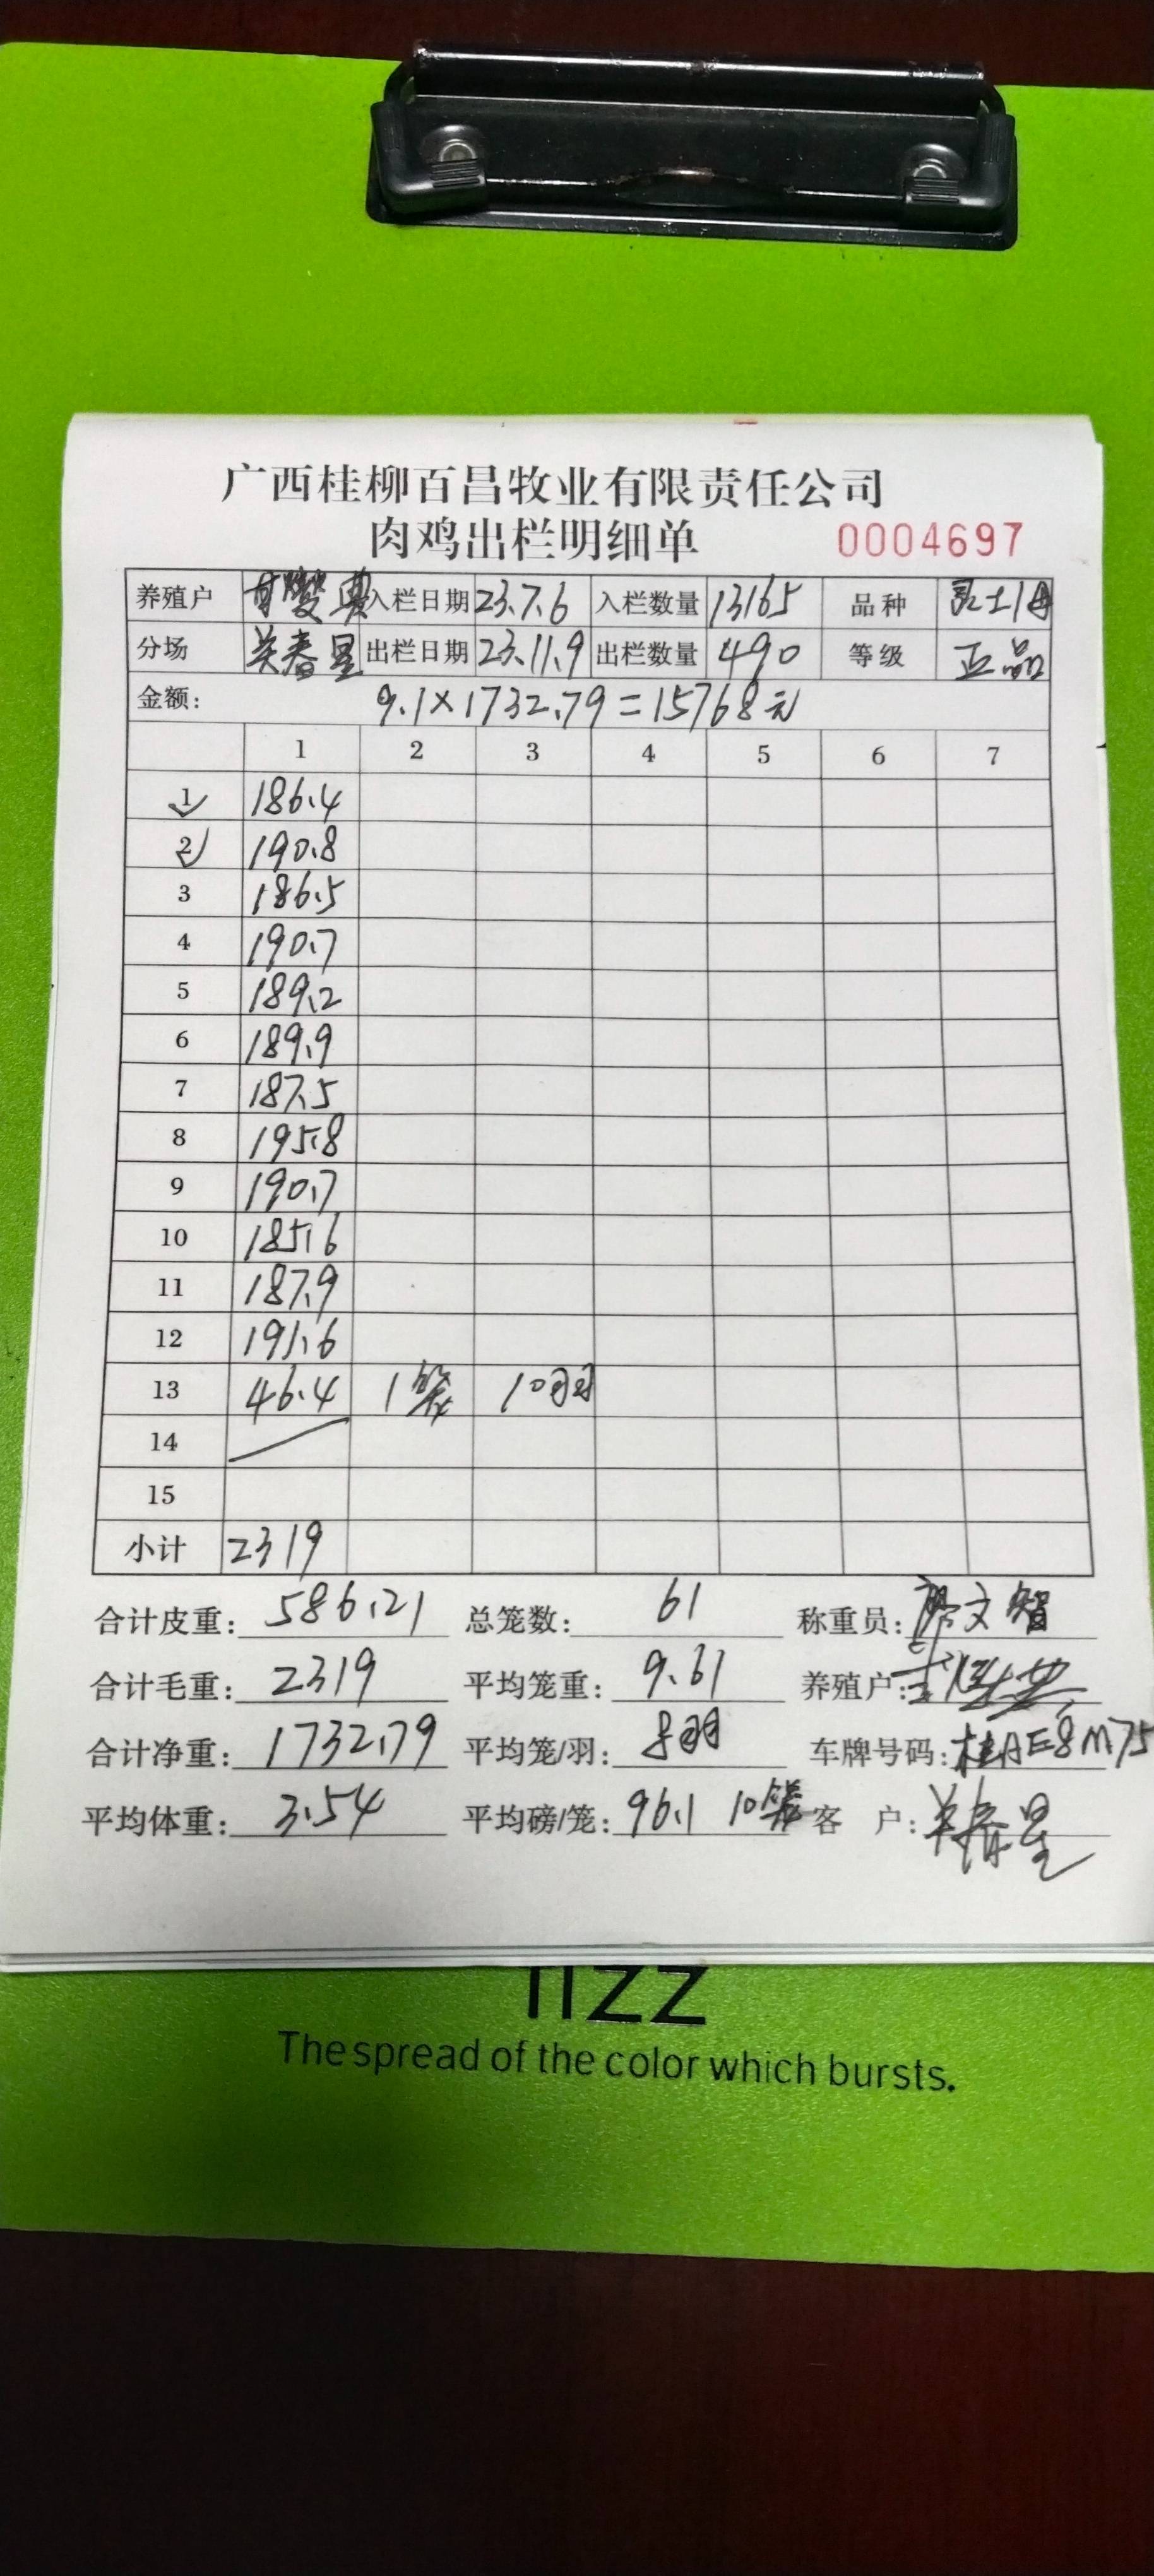 广西桂柳百昌牧业有限责任公司
肉鸡出栏明细单 0004697
养殖户 入栏日期 23.7.6 入栏数量 13165 品种
分场 出栏日期 23.11.9 出栏数量 490 等级 正品
金额: 9.1×1732.79=15768元
1 2 3 4 5 6 7
1 186.4
2 190.8
3 186.5
4 190.7
5 189.2
6 189.9
7 187.5
8 195.8
9 190.7
10 185.6
11 187.9
12 191.6
13 46.4 1笼 10羽
14
15
小计 2319
合计皮重: 586.21 总笼数: 61 称重员: 文智
合计毛重: 2319 平均笼重: 9.61 养殖户:
合计净重: 1732.79 平均笼/羽: 8羽 车牌号码: 桂AE8M75
平均体重: 3.54 平均磅/笼: 96.1 10笼 客 户: 春星
TIZZ
The spread of the color which bursts.